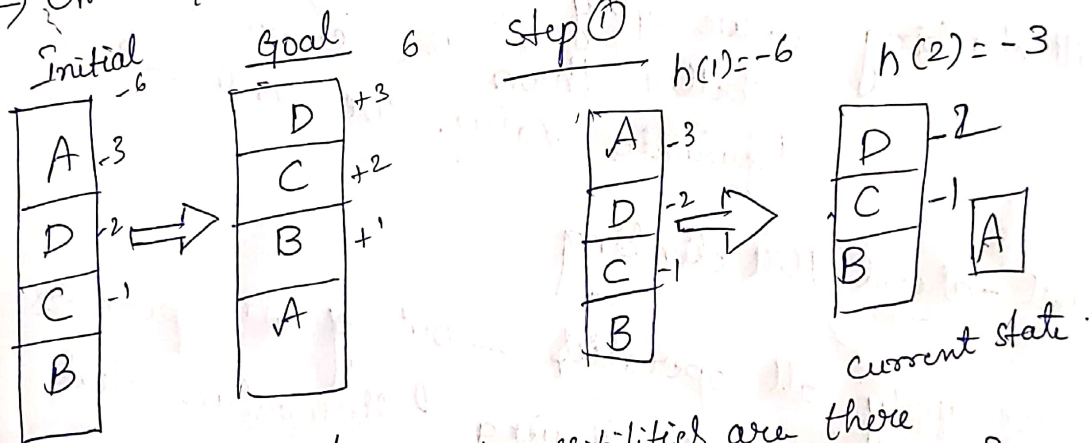 Initial
-6
A -3
D -2
C -1
B
Goal 6
D +3
C +2
B +1
A
Step ①
h(1)=-6
A -3
D -2
C -1
B
h(2)=-3
D -2
C -1
B
A
current state.
are there